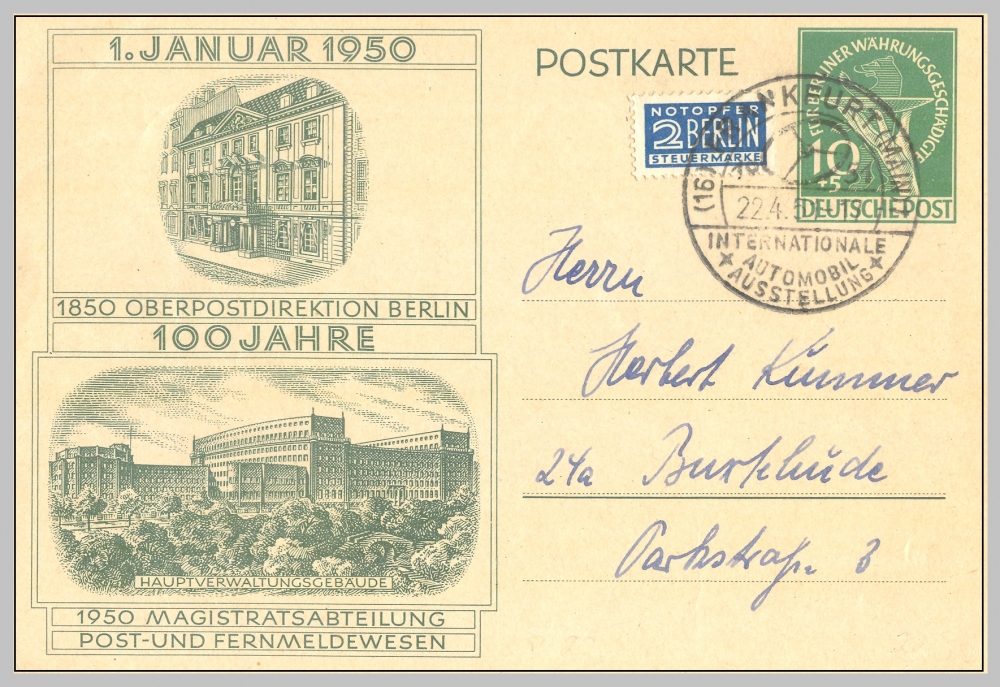 1. JANUAR 1950
1850 OBERPOSTDIREKTION BERLIN
100 JAHRE
HAUPTVERWALTUNGSGEBÄUDE
1950 MAGISTRATSABTEILUNG
POST-UND FERNMELDEWESEN
POSTKARTE
NOTOPFER
2 BERLIN
STEUERMARKE
FÜR BERLINER WÄHRUNGSGESCHÄDIGTE
10
+5
DEUTSCHE POST
(16) FRANKFURT (MAIN)
22.4.
INTERNATIONALE
AUTOMOBIL
AUSSTELLUNG
Herrn
Herbert Kummer
24a Buxtehude
Parkstraße 3